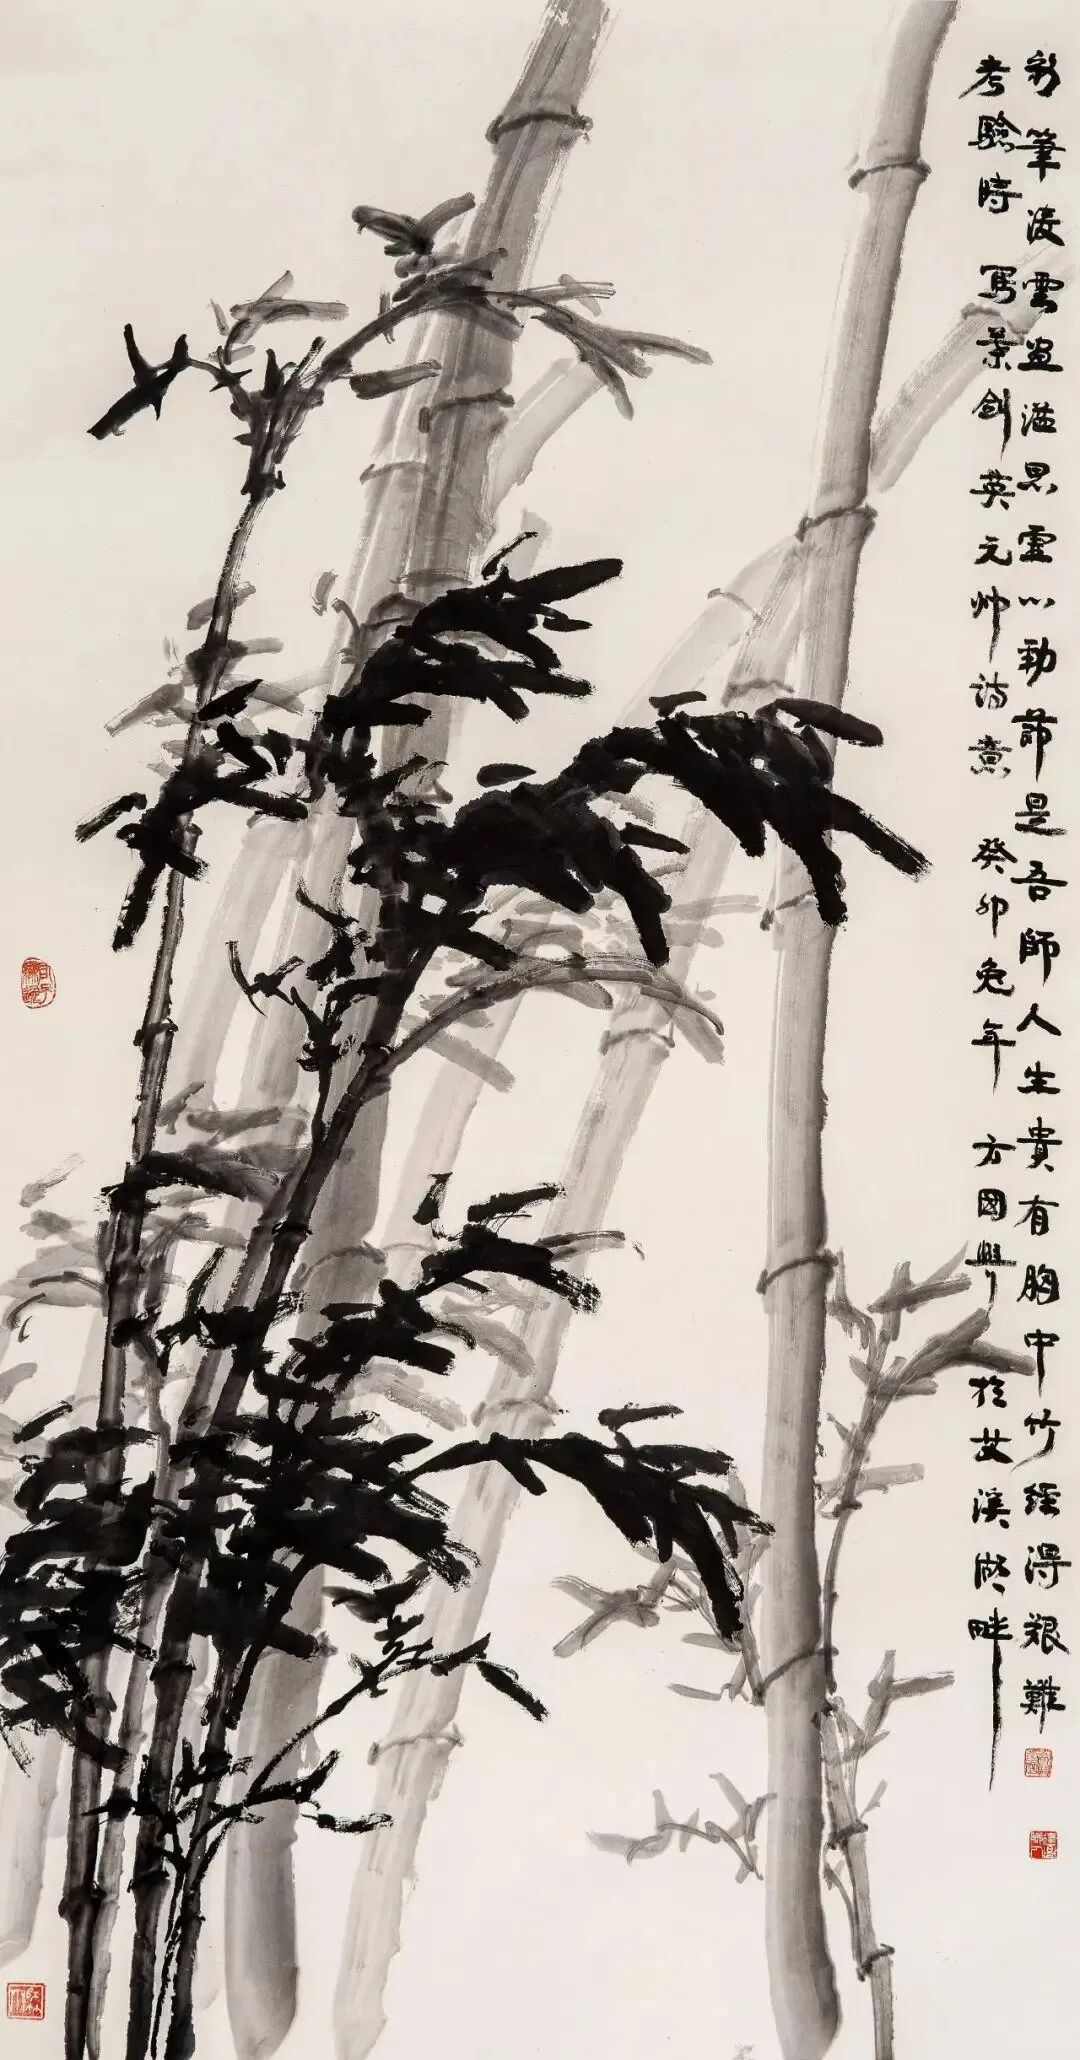 彩筆凌雲畫溢思虛心勁節是吾師人生貴有胸中竹經得艱難
考驗時 寫葉劍英元帥詩意 癸卯兔年 方國興 於艾溪湖畔